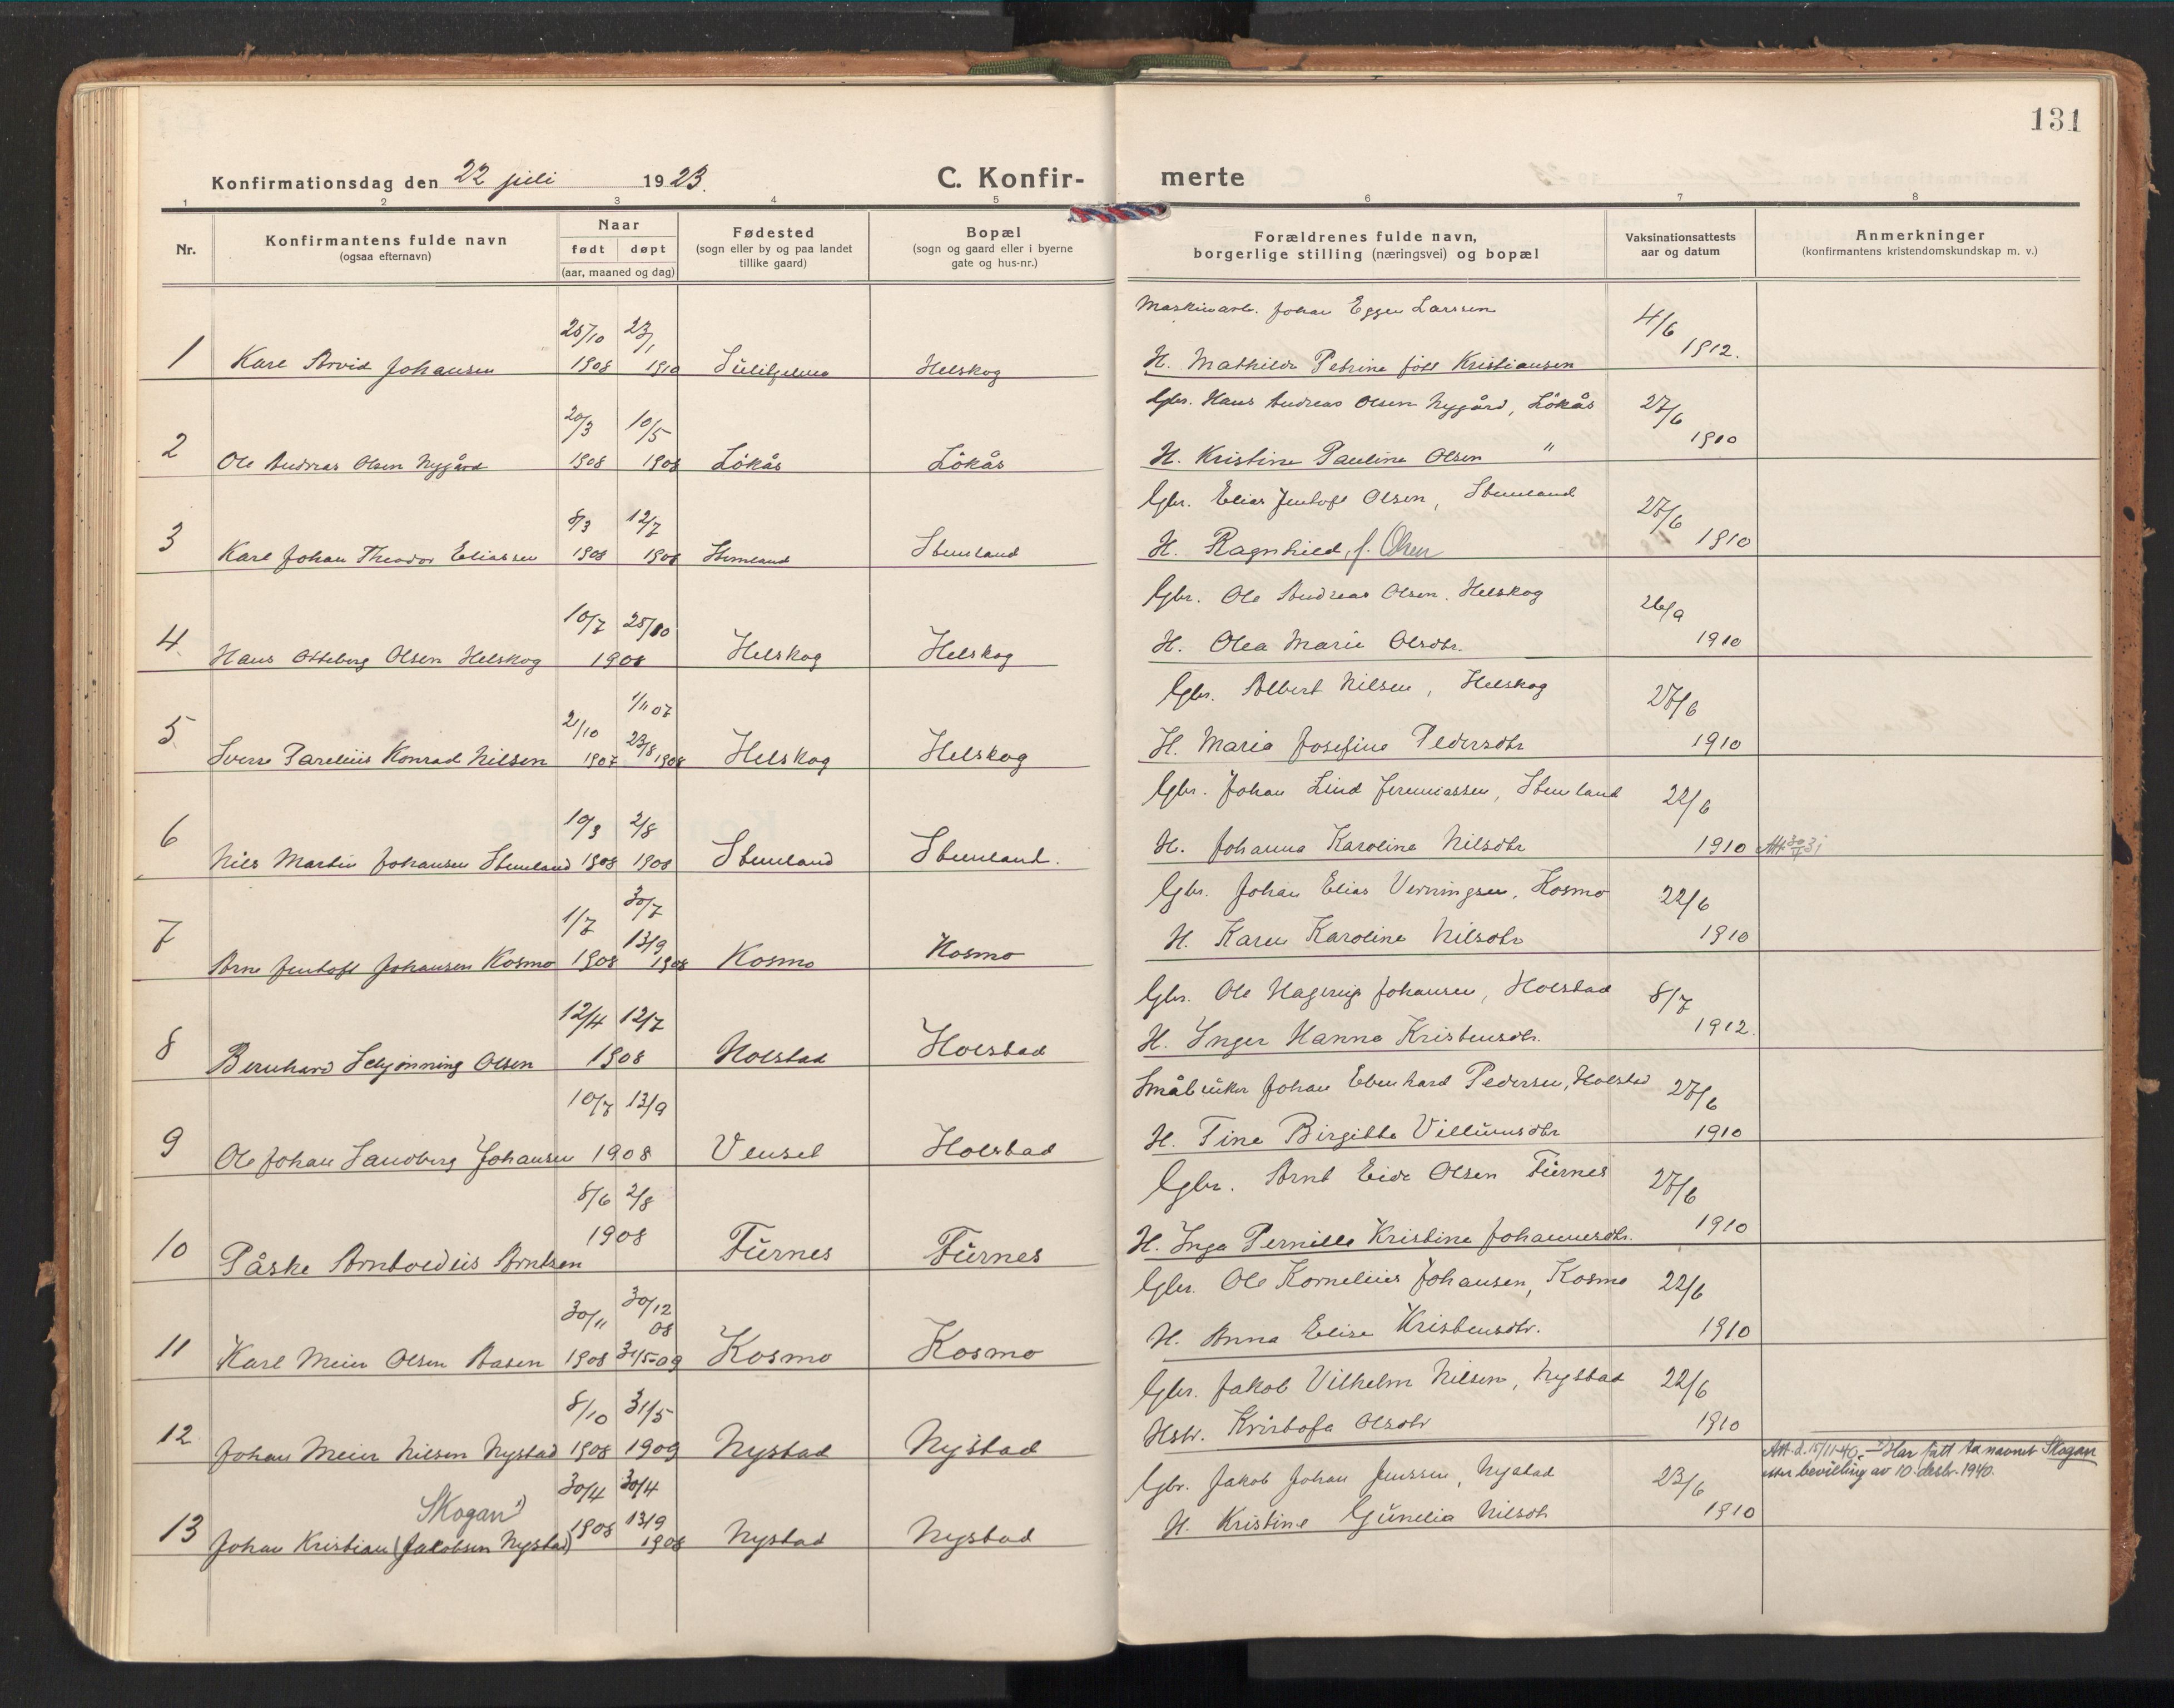 131
Konfirmationsdag den 22 juli 1923.
C. Konfir- merte
1 2 3 4 5 6 7 8
Nr.
Konfirmantens fulde navn
(ogsaa efternavn)
Naar
født døpt
(aar, maaned og dag)
Fødested
(sogn eller by og paa landet
tillike gaard)
Bopæl
(sogn og gaard eller i byerne
gate og hus-nr.)
Forældrenes fulde navn,
borgerlige stilling (næringsvei) og bopæl
Vaksinationsattests
aar og datum
Anmerkninger
(konfirmantens kristendomskundskap m. v.)
25/10 23/1 Maskinarb. Johan Eggen Larssen 4/6
1 Karl Arvid Johansen 1908 1910 Sulitjelma Helskog H. Mathilde Petrine født Kristiansen 1912.
20/3 10/5 Gbr. Hans Andreas Olsen Nygård, Løkås 27/6
2 Ole Andreas Olsen Nygård 1908 1908 Løkås Løkås H. Kristine Pauline Olsen " 1910
8/3 12/7 Gbr. Elias Jentoft Olsen, Stemland 27/6
3 Karl Johan Theodor Eliassen 1908 1908 Stemland Stemland H. Ragnhild, f. Olsen 1910
10/7 25/10 Gbr. Ole Andreas Olsen, Helskog 26/9
4 Hans Otteberg Olsen Helskog 1908 Helskog Helskog H. Olea Marie Olsdtr. 1910
2/10 1/11 07 Gbr. Albert Nilsen, Helskog 27/6
5 Sverre Parelius Konrad Nilsen 1907 23/8 1908 Helskog Helskog H. Maria Josefine Pedersdtr 1910
10/3 2/8 Gbr. Johan Lind Jeremiassen, Stemland 22/6
6 Nils Martin Johansen Stemland 1908 1908 Stemland Stemland. H. Johanna Karoline Nilsdtr 1910 Att 30/4 31
1/7 30/7 Gbr. Johan Elias Verningsen, Kosmo 22/6
7 Arne Jentoft Johansen Kosmo 1908 13/9 1908 Kosmo Kosmo H. Karen Karoline Nilsdtr 1910
12/4 12/7 Gbr. Ole Hagerup Johansen, Holstad 8/7
8 Bernhard Schjønning Olsen 1908 Holstad Holstad H. Inger Hanna Kristensdtr. 1912.
10/7 13/9 Småbruker Johan Ebenhard Pedersen, Holstad 27/6
9 Ole Johan Sandberg Johansen 1908 Venset Holstad H. Tina Birgitte Villumsdtr 1910
8/6 2/8 Gbr. Arnt Eide Olsen Furnes 27/6
10 Påske Arntoedius Arntsen 1908 Furnes Furnes H. Inga Pernille Kristine Johannesdtr. 1910
30/11 30/12 08 Gbr. Ole Kornelius Johansen, Kosmo 22/6
11 Karl Meier Olsen Aasen 1908 31/5-09 Kosmo Kosmo H. Anna Elise Kristensdtr. 1910
8/10 31/5 Gbr. Jakob Vilhelm Nilsen, Nystad 22/6
12 Johan Meier Nilsen Nystad 1908 1909 Nystad Nystad Hstr. Kristofa Olsdtr 1910
Skogan 1) 30/4 30/4 Gbr. Jakob Johan Jenssen, Nystad 23/6 Att. d. 15/11-40. - 1) Har fått ta navnet Skogan
13 Johan Kristian (Jakobsen Nystad) 1908 13/9 1908 Nystad Nystad H. Kristine Gunelia Nilsdtr 1910 etter bevilling av 10. desbr. 1940.